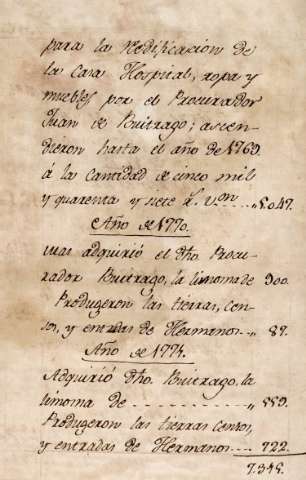 para la redificacion de
la Casa Hospital, ropa y
muebles por el Procurador
Juan de Buitrago; ascen-
dieron hasta el año de 1769.
á la cantidad de cinco mil
y quarenta y siete r.s v.on .... 5.047.
Año de 1770.
mas adquirió el dho Procu-
rador Buitrago, la limosna de 900.
Produgeron las tierras, cen-
sos, y entradas de Hermanos... 87.
Año de 1771.
Adquirió dho. Buitrago, la
limosna de - - - - - - - - - - 559.
Produgeron las tierras censos,
y entradas de Hermanos.... 722.
7.345.